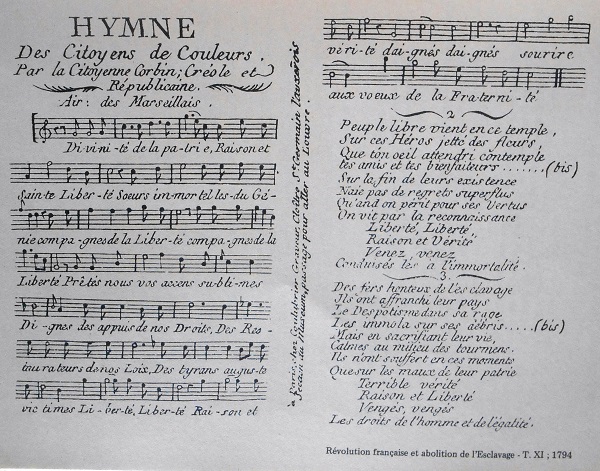 HYMNE
Des Citoyens de Couleurs,
Par la Citoyenne Corbin; Créole et
Républicaine.
Air: des Marseillais.
Di vi ni té de la pa tri e, Raison et
Sainte Liber-té Soeurs im mor tel les du Gé-
nie compa-gnes de la Liber-té compa-gnes de la
Liberté Prêtés nous vos accens su bli mes
Di-gnes des appuis de nos Droits, Des Res-
tau rateurs de nos Loix, Des tyrans augus te
vic times Li-ber-té, Liber-té Rai-son et
à Paris, chez Coulubrier Graveur, Cloître St Germain l'auxerois
Jecain du Museum, passage pour aller au Louvre.
véri-té dai-gnés dai-gnés sourire
aux voeux de la Fra terni-té
2
Peuple libre vient en ce temple,
Sur ces Héros jetté des fleurs,
Que ton oeil attendri contemple
les amis et tes bienfaiteurs........(bis)
Sur la fin de leurs existence
N'aie pas de regrets superflus
Qu'and on périt pour ses Vertus
On vit par la reconnaissance
Liberté, Liberté,
Raison et Vérité
Venez, venez
Conduisés les à l'immortalité.
3.
Des fers honteux de l'esclavage
Ils ont affranchi leur pays
Le Despotisme dans sa rage
Les immola sur ses débris.....(bis)
Mais en sacrifiant leur vie,
Calmes au milieu des tourmens.
Ils n'ont souffert en ces moments
Que sur les maux de leur patrie
Terrible vérité
Raison et Liberté
Vengés, vengés
Les droits de l'homme et de l'égalité.
Révolution française et abolition de l'Esclavage - T. XI ; 1794